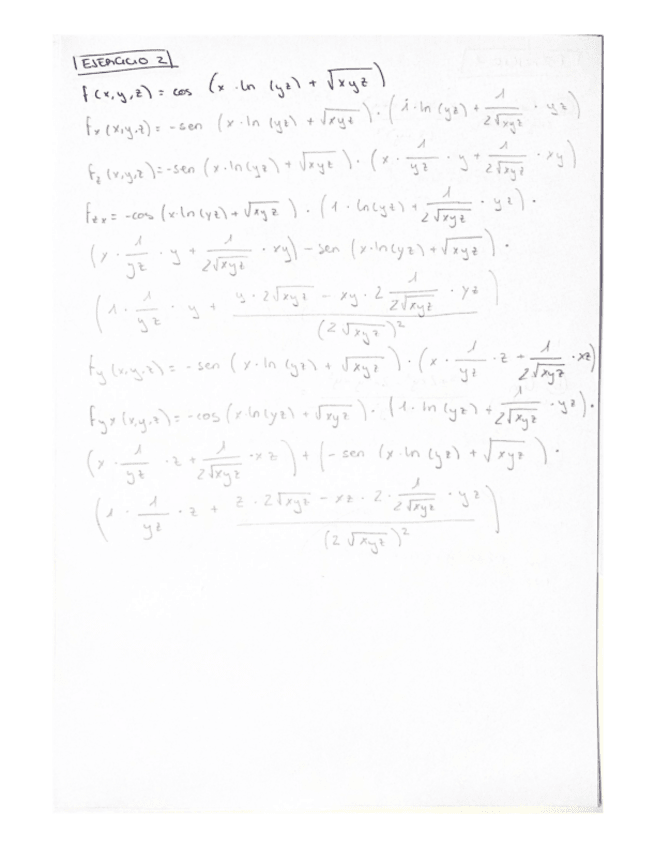 EJERCICIO 2
f(x,y,z) = cos (x · ln (yz) + √xyz)
fx (x,y,z) = -sen (x · ln (yz) + √xyz) · (1 · ln(yz) + 1/(2√xyz) · yz)
fz (x,y,z) = -sen (x · ln(yz) + √xyz) · (x · 1/yz · y + 1/(2√xyz) · xy)
fzx = -cos (x·ln(yz) + √xyz) · (1 · ln(yz) + 1/(2√xyz) · yz) ·
(x · 1/yz · y + 1/(2√xyz) · xy) - sen (x·ln(yz) + √xyz) ·
(1 · 1/yz · y + (y · 2√xyz - xy · 2 1/(2√xyz) · yz)/(2√xyz)²)
fy (x,y,z) = -sen (x · ln (yz) + √xyz) · (x · 1/yz · z + 1/(2√xyz) · xz)
fyx (x,y,z) = -cos (x·ln(yz) + √xyz) · (1 · ln (yz) + 1/(2√xyz) · yz) ·
(x · 1/yz · z + 1/(2√xyz) · xz) + (- sen (x · ln (yz) + √xyz) ·
(1 · 1/yz · z + (z · 2√xyz - xz · 2 · 1/(2√xyz) · yz)/(2√xyz)²)